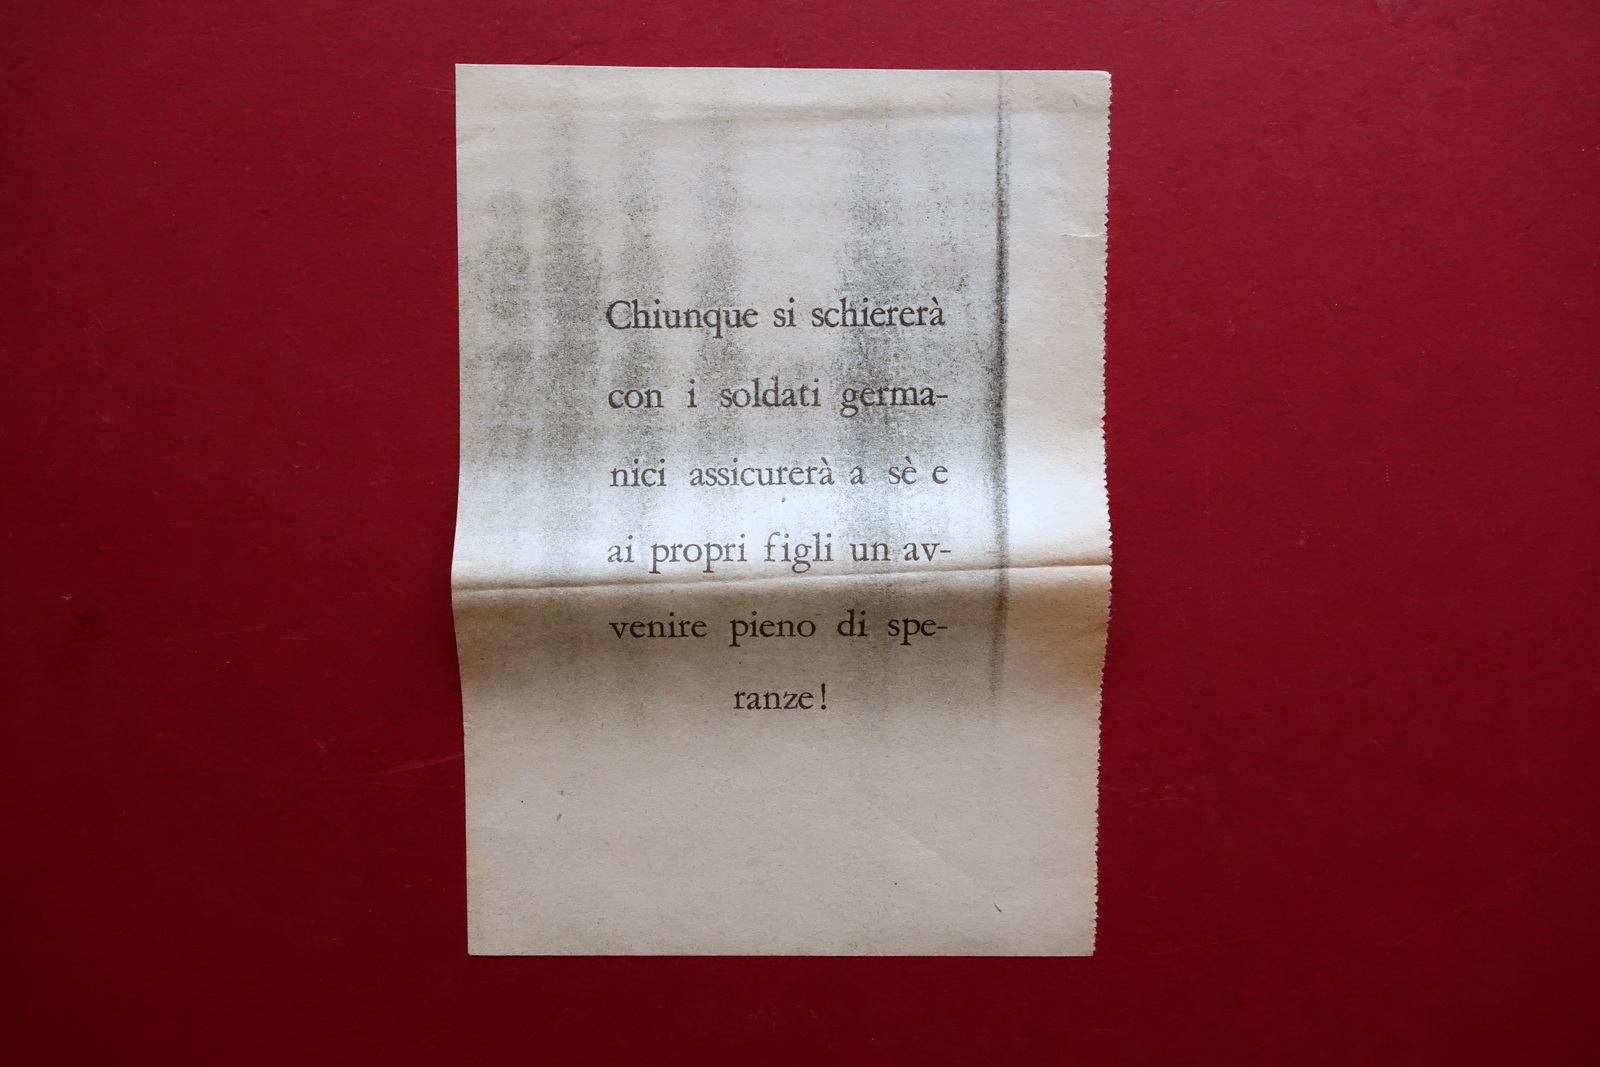 Chiunque si schiererà
con i soldati germa-
nici assicurerà a sè e
ai propri figli un av-
venire pieno di spe-
ranze!